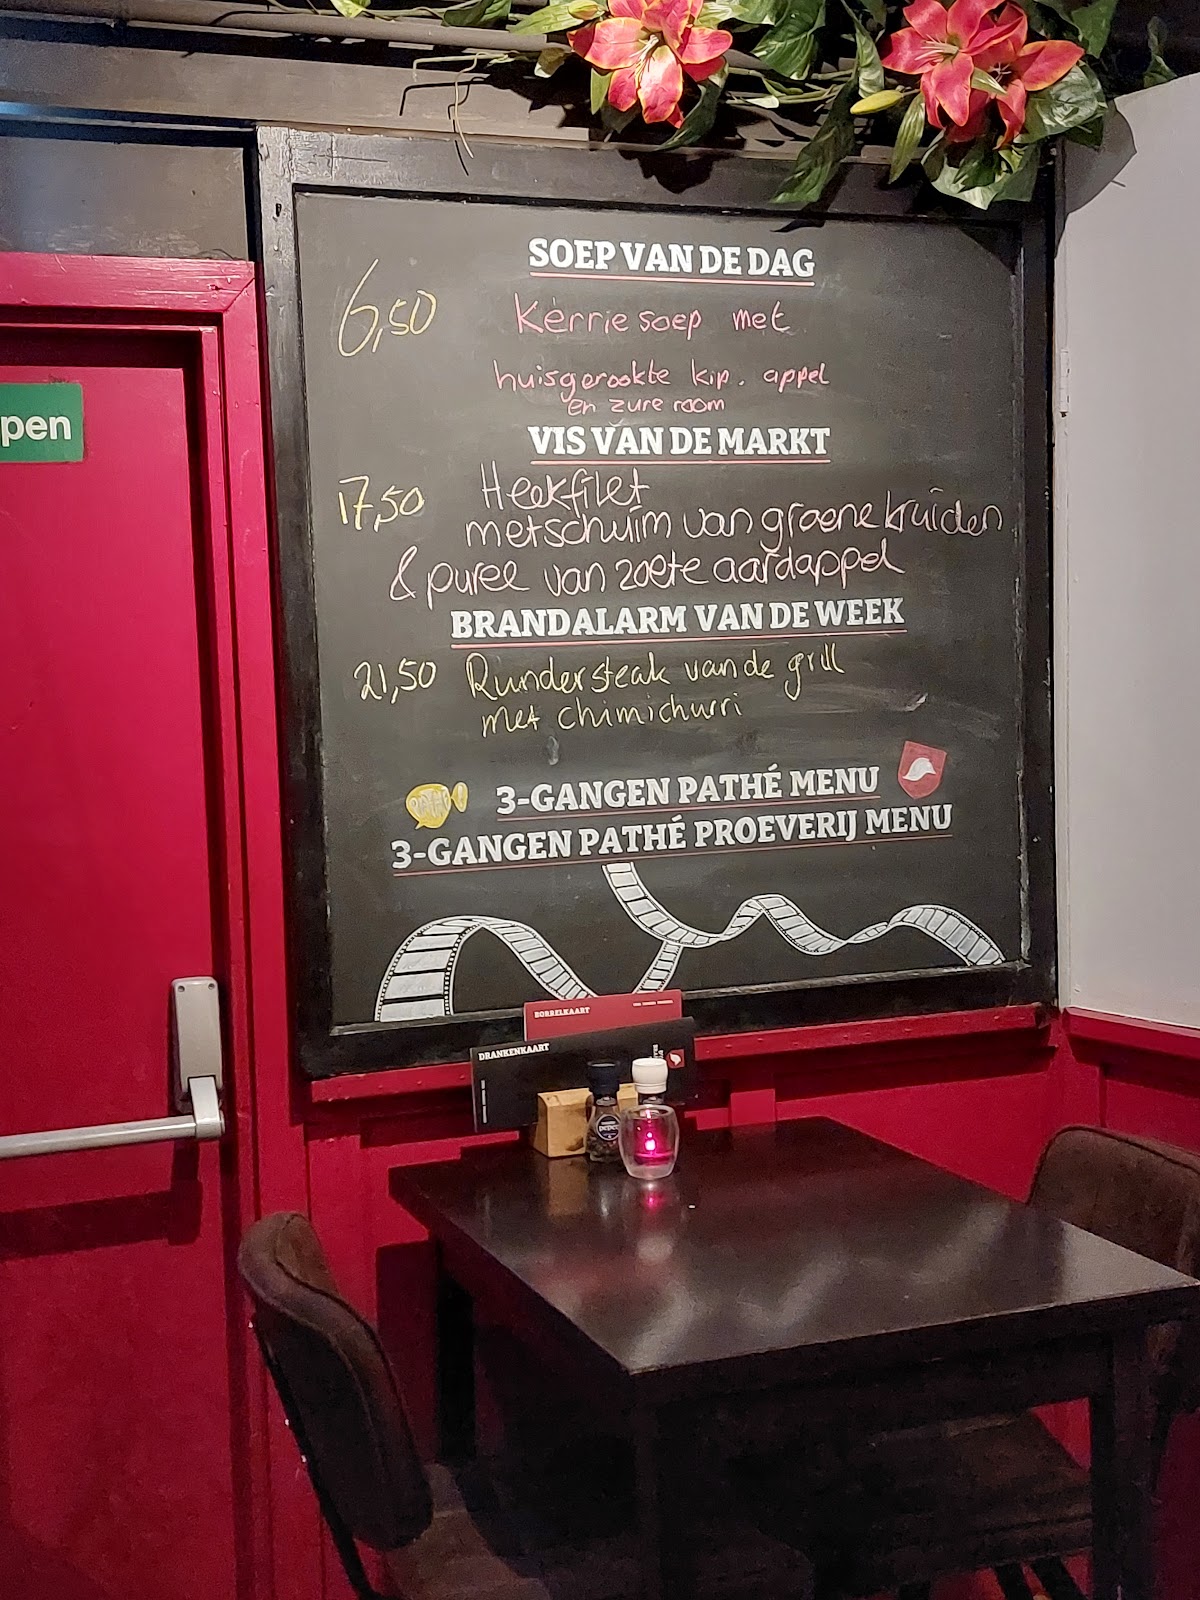 pen
SOEP VAN DE DAG
6,50 Kerrie soep met
huisgerookte kip. appel
en zure room
VIS VAN DE MARKT
17,50 Heekfilet
met schuim van groene kruiden
& puree van zoete aardappel
BRANDALARM VAN DE WEEK
21,50 Runder steak van de grill
met chimichurri
PATHÉ! 3-GANGEN PATHÉ MENU
3-GANGEN PATHÉ PROEVERIJ MENU
BORRELKAART
DRANKENKAART
peper